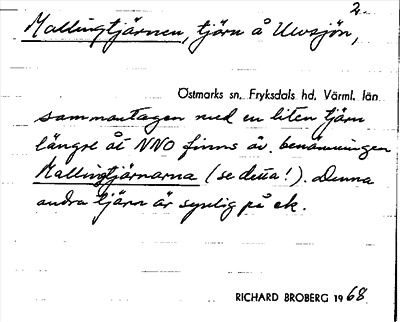 2.
Mallingtjärnen, tjärn å Uvasjön,
Östmarks sn, Fryksdals hd, Värml. län
sammantagen med en liten tjärn
längre åt NNO finns äv. benämningen
Mallingtjärnarna (se detta!). Denna
andra tjärn är synlig på ek.
RICHARD BROBERG 1968.